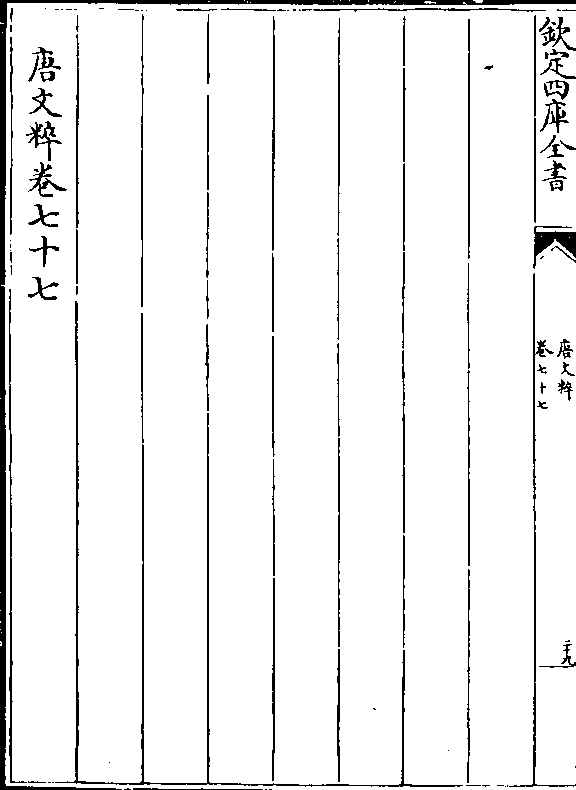 欽定四庫全書
唐文粹
卷七十七
二十九
唐文粹卷七十七